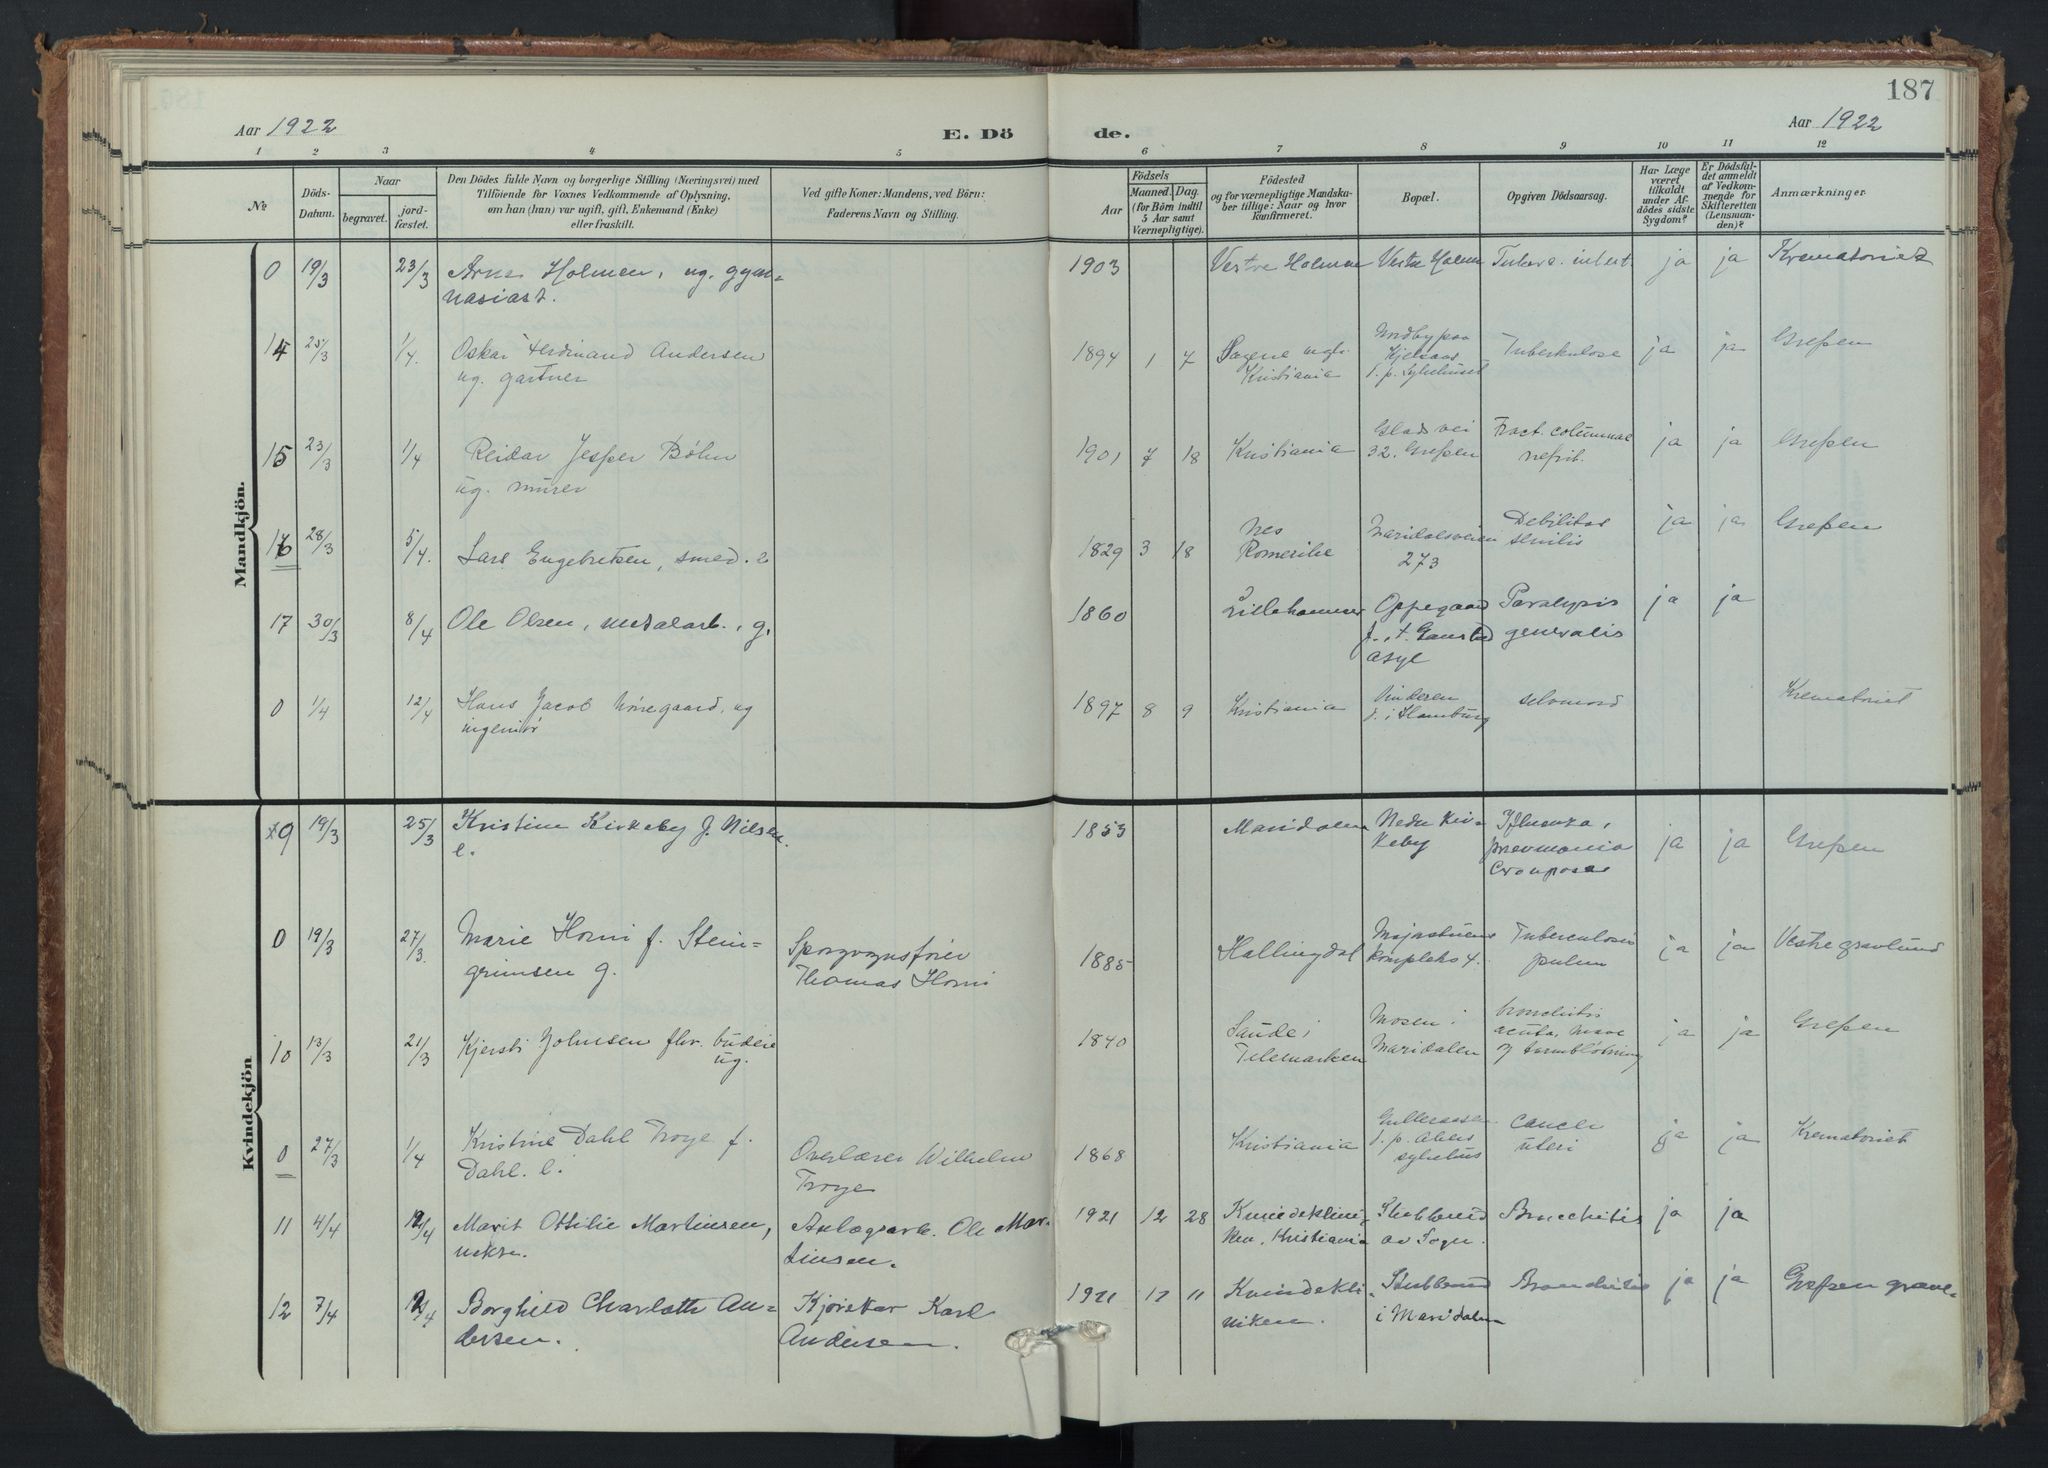 187
Aar 1922
E. Dö
de.
Aar 1922
1 2 3 4 5 6 7 8 9 10 11 12
No
Döds-
Datum.
Naar
begravet.
jord-
fæstet.
Den Dödes fulde Navn og borgerlige Stilling (Næringsvei) med
Tilföiende for Voxnes Vedkommende af Oplysning,
om han (hun) var ugift, gift, Enkemand (Enke)
eller fraskilt.
Ved gifte Koner: Mandens, ved Börn:
Faderens Navn og Stilling.
Födsels
Aar
Maaned. Dag.
(for Börn indtil
5 Aar samt
Værnepligtige).
Födested
og for værnepligtige Mandska-
ber tillige: Naar og hvor
konfirmeret.
Bopæl.
Opgiven Dödsaarsag.
Har Læge
været
tilkaldt
under Af-
dödes sidste
Sygdom?
Er Dödsfal-
det anmeldt
af Vedkom-
mende for
Skifteretten
(Lensman-
den)?
Anmærkninger
Mandkjön.
0 19/3 23/3 Arne Holmen, ug. gym=
nasiast.
1903 Vestre Holmen Vestre Holmen ja ja Krematoriet
14 25/3 1/4 Oskar Ferdinand Andersen
ug. gartner
1894 1 7 Sagene
Kristiania
Nordby paa
Kjelsaas
d. p. Sykehuset
Tuberkulose ja ja Grefsen
15 23/3 1/4 Reidar Jesper Böhn
ug. murer
1901 7 18 Kristiania
Glads vei
32. Grefsen
Fract. columnae
nefrit.
ja ja Grefsen
16 28/3 5/4. Lars Engebretsen, smed. e
1829 3 18 Nes
Romerike
Maridalsveien
273
Debilitas
senilis
ja ja Grefsen
17 30/3 8/4 Ole Olsen, metalarb., g.
1860 Lillehammer
Oppegaard
Gaustad
asyl
Paralysis
generalis
ja ja
0 1/4 12/4 Hans Jacob Nøregaard, ug
ingeniør
1897 8 9 Kristiania
Vinderen
d. i Hamburg
selvmord
Krematoriet
Kvindekjön
9 19/3 25/3 Kristine Kirkeby f. Nilsen.
e.
1853 Maridalen
Nedre Kir-
keby
Influenza,
pnevmonia
Crouposa
ja ja Grefsen
0 19/3 27/3 Marie Horni f. Stein=
grimsen g.
Sporvognsfører
Thomas Horni
1885 Hallingdal
Majorstuens
kompleks 4.
Tuberculosis
pulm
ja ja Vestre gravlund
10 13/3 21/3 Kjersti Johnsen fhv. budeie
ug.
1840 Saude i
Telemarken
Mosen i
Maridalen
bronchitis
acuta, mave
og tarmblødning
ja ja Grefsen
0 27/3 1/4 Kristine Dahl Troye f.
Dahl. e.
Overlærer Wilhelm
Troye
1868 Kristiania
d. p.
sykehus
Cancer
uteri
ja ja Krematoriet
11 4/4 12/4 Marit Ottilie Martinsen,
Anlægsarb. Ole Mar-
tinsen.
1921 12 28 Kvindeklini-
ken, Kristiania
Stubberud
av Sogn.
Bronchitis ja ja
12 7/4 12/4 Borghild Charlotte An=
dersen.
Kjørekar Karl
Andersen.
1921 12 11 Kvindekli-
niken.
Stubberud
i Maridalen
Bronchitis ja ja Grefsen grave-